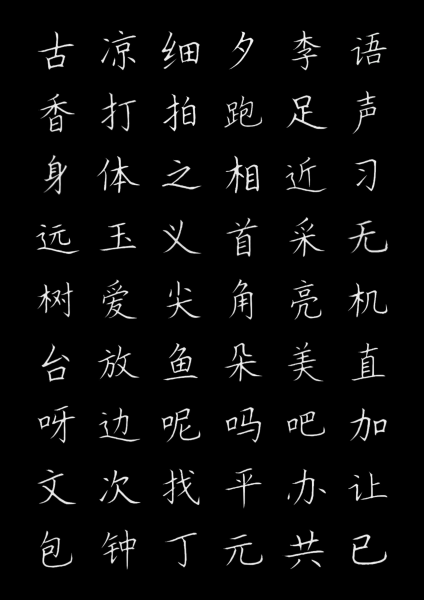 古凉细夕李语
香打拍跑足声
身体之相近习
远玉义首采无
树爱尖角亮机
台放鱼朵美直
呀边呢吗吧加
文次找平办让
包钟丁元共已